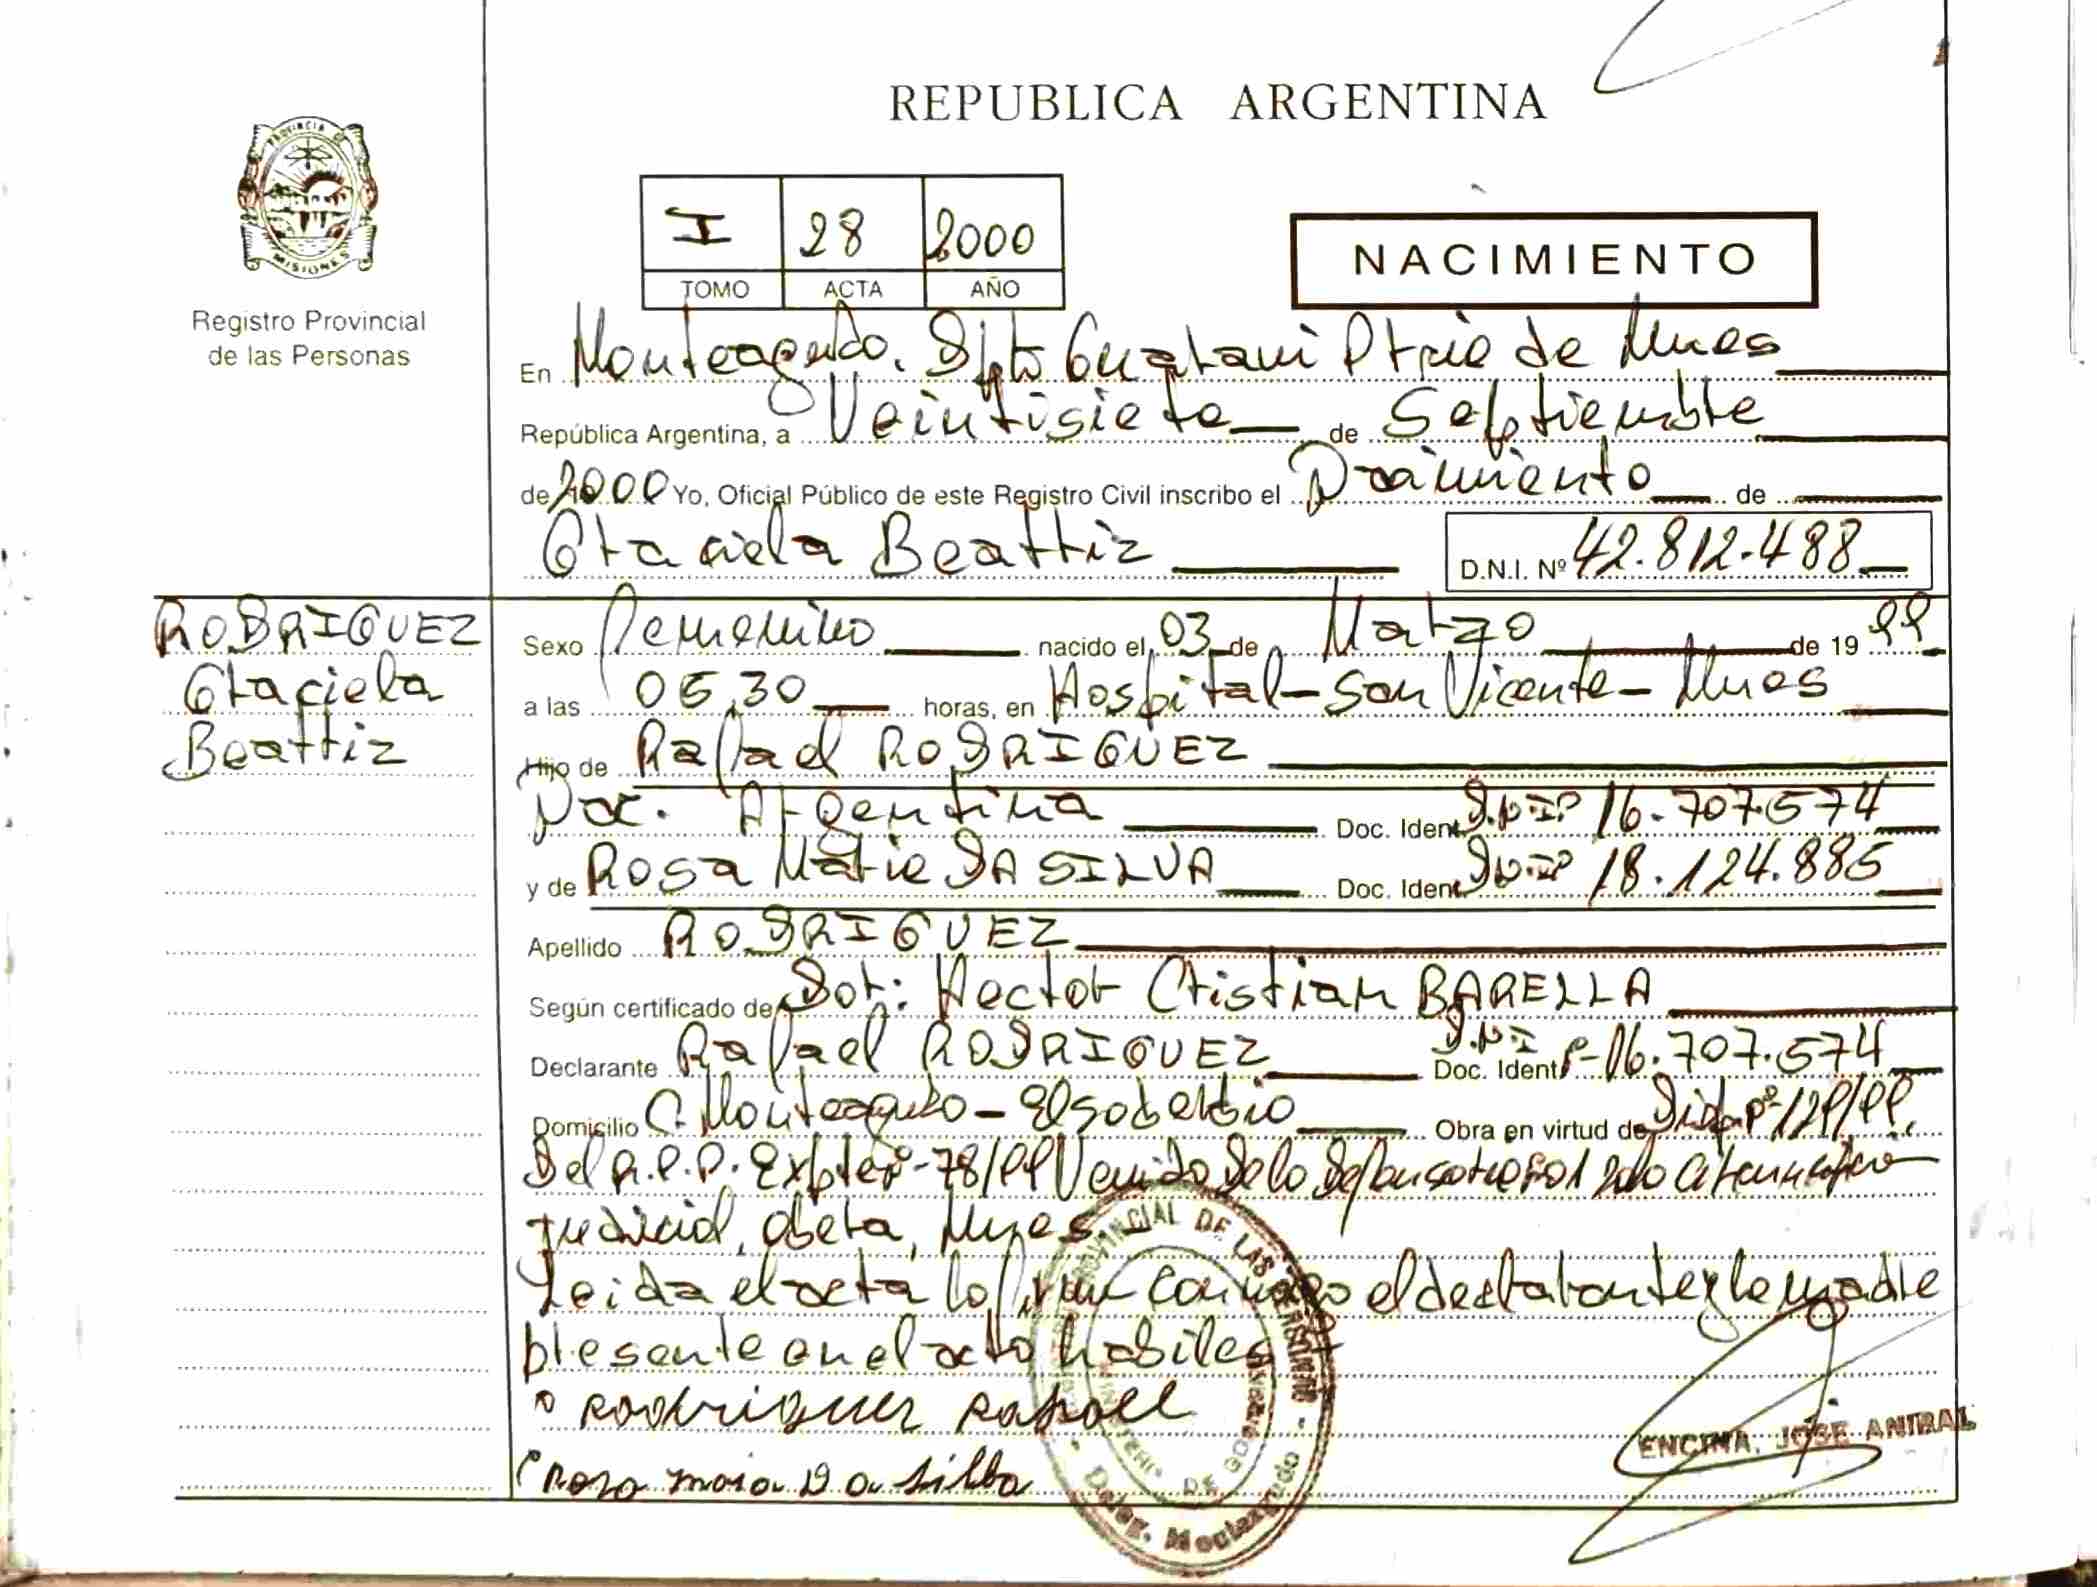 REPUBLICA ARGENTINA
PROVINCIA DE
MISIONES
Registro Provincial
de las Personas
I 28 2000
TOMO ACTA AÑO
NACIMIENTO
En Monteagudo. Dpto Guarani Pcia de Mnes
República Argentina, a Veintisiete de Septiembre
de 2000 Yo, Oficial Público de este Registro Civil inscribo el Nacimiento de
Graciela Beatriz D.N.I. Nº 42.812.488
RODRIGUEZ
Graciela
Beatriz
Sexo Femenino nacido el 03 de Marzo de 19 99
a las 05,30 horas, en Hospital - San Vicente - Mnes
Hijo de Rafael RODRIGUEZ
Nac. Argentina Doc. Ident. D.N.I Nº 16.707.574
y de Rosa Maria DA SILVA Doc. Ident. D.N.I Nº 18.124.885
Apellido RODRIGUEZ
Según certificado de Dor: Hector Cristian BARELLA
Declarante Rafael RODRIGUEZ Doc. Ident. D.N.I Nº 16.707.574
Domicilio C. Monteagudo - El soberbio Obra en virtud de Disp. Nº 129/99.
Del R.P.P. Expte Nº 78/99 Venido De la
judicial, obera, Mnes
Leida el acta la firman conmigo el declarante y la madre
presente en el acto habiles
Rodriguez Rafael
Rosa maia Da silba
ENCINA, JOSE ANIBAL
PROVINCIAL DE LAS PERSONAS
MINISTERIO DE GOBIERNO
Deleg. Monteagudo